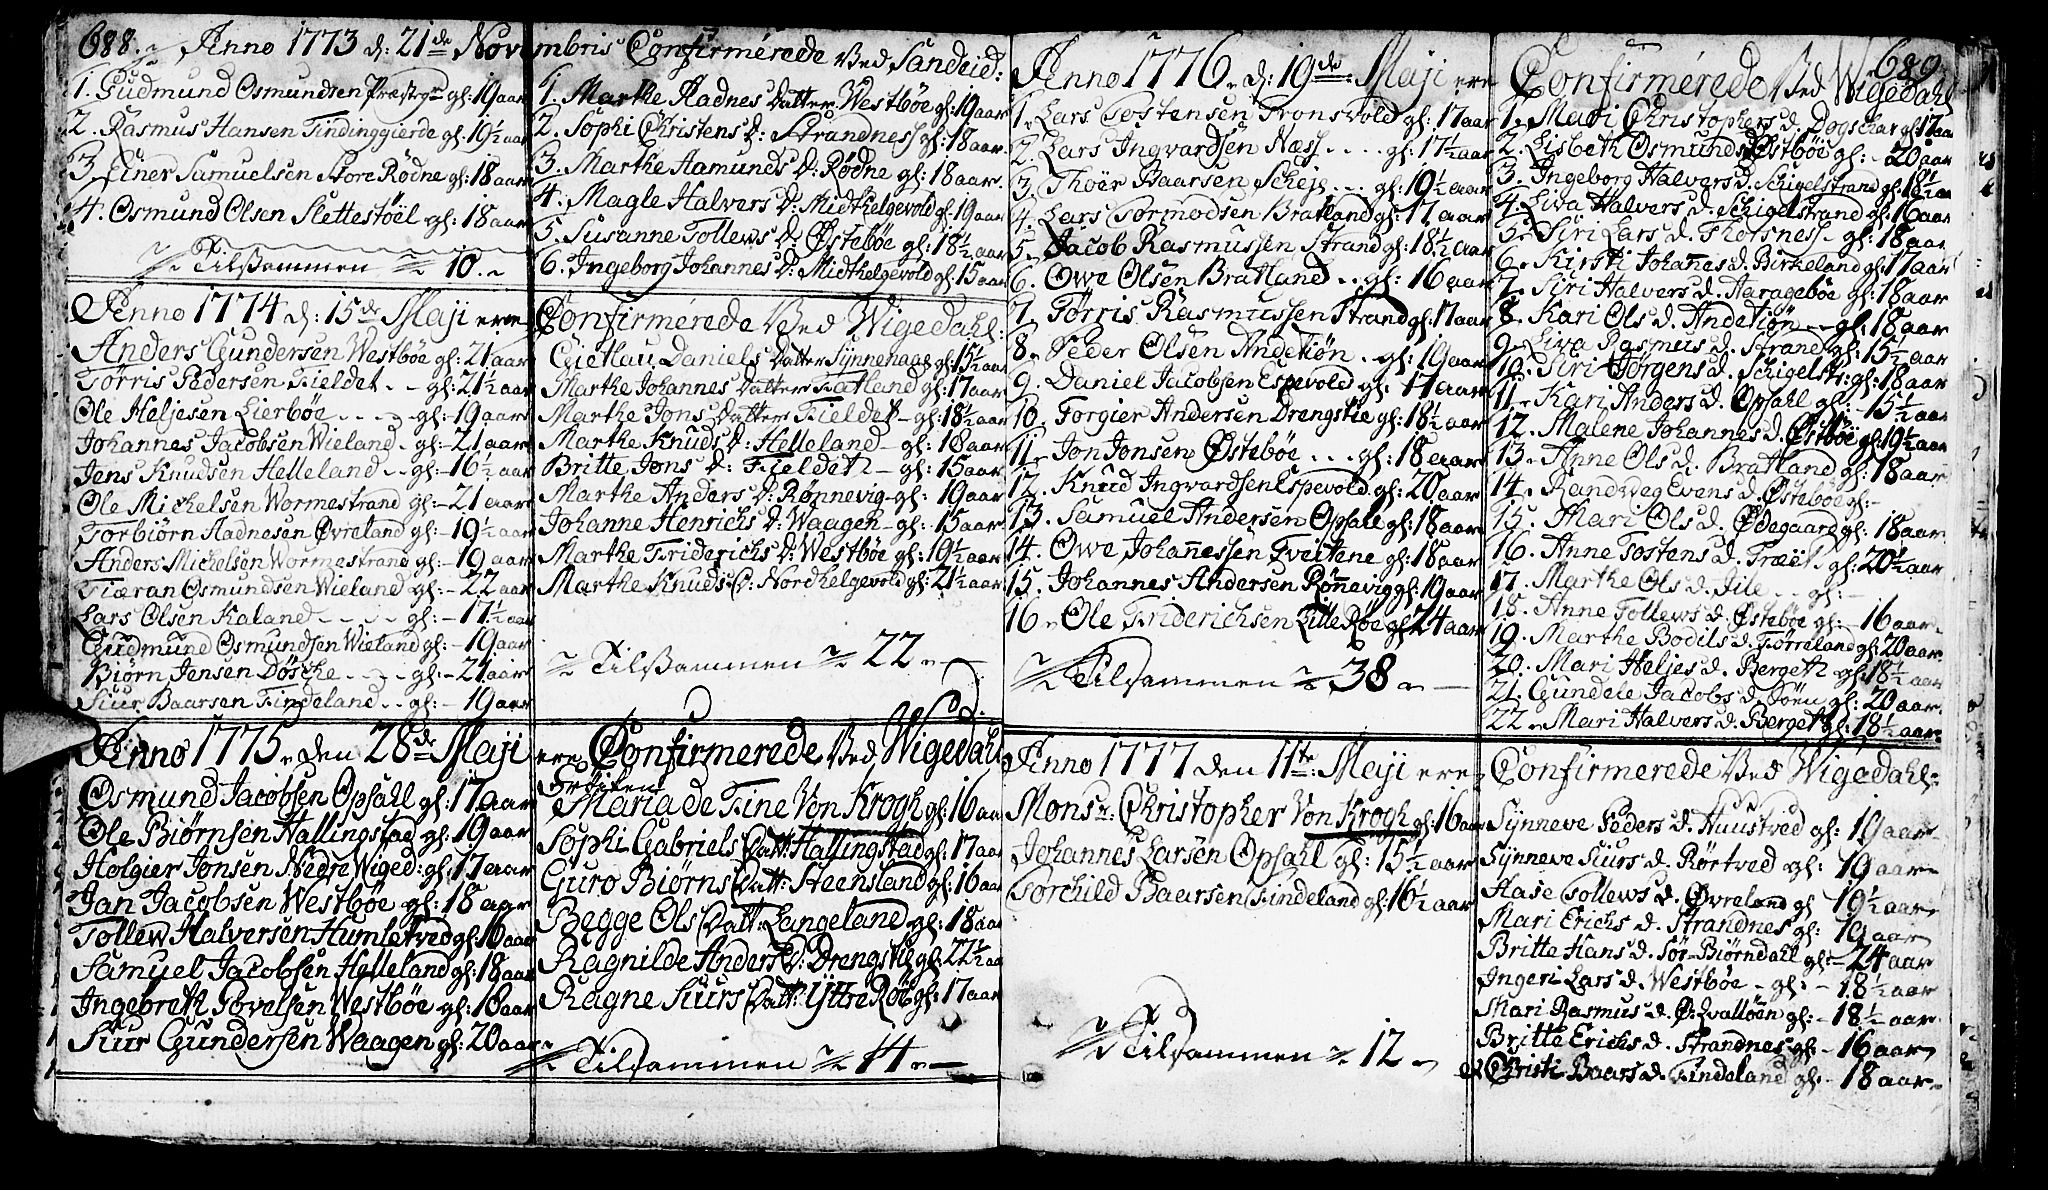 688. Anno 1773 d: 21de Novembris Confirmerede Ved Sandeid:
1. Gudmund Osmundsen Præstegr gl: 19 aar
2. Rasmus Hansen Tindinggierde gl: 19½ aar
3. Einer Samuelsen Store Rødne gl: 18 aar
4. Osmund Olsen Slettestøel gl: 18 aar
Tilsammen 10.
1. Marthe Aadnes Datter Westbøe gl: 19 aar
2. Sophi Christens D: Strandness gl: 18 aar.
3. Marthe Aamunds D: Rødne gl: 18 aar.
4. Magle Halvers D: Midthelgevold gl: 19 aar
5. Susanne Tollews D: Østebøe gl: 18½ aar
6. Ingeborg Johannes D: Midthelgevold gl: 15 aar
Anno 1774 d: 15de Maji ere Confirmerede Ved Wigedahl:
Anders Gundersen Westbøe gl: 21 aar
Tørris Pedersen Fieldet gl: 21½ aar
Ole Heljesen Lierbøe gl: 19 aar
Johannes Jacobsen Wieland gl: 21 aar
Jens Knudsen Helleland gl: 16½ aar
Ole Mickelsen Wormestrand gl: 21 aar
Torbiørn Aadnesen Øvreland gl: 19½ aar
Anders Mickelsen Wormestrand gl: 19 aar
Tiæran Osmundsen Wieland gl: 22 aar
Lars Olsen Kaland gl: 17½ aar
Gudmund Osmundsen Wieland gl: 19 aar
Biørn Jensen Døsche gl: 21 aar
Siur Baarsen Findeland gl: 19 aar
Gietlau Daniels Datter Synnenaae gl: 15½ aar
Marthe Johannes Datter Fatland gl: 17 aar
Marthe Jons Datter Fieldet gl: 18½ aar
Marthe Knuds D: Helleland gl: 18 aar
Britte Jons D: Fieldet gl: 15 aar
Marthe Anders D: Rønnevig gl: 19 aar
Johanne Henrichs D: Waagen gl: 15 aar
Marthe Friderichs D: Westbøe gl: 19½ aar
Marthe Knuds D: Nordhelgevold gl: 21½ aar
Tilsammen 22
Anno 1775 den 28de Maji ere Confirmerede Ved Wigedahl
Osmund Jacobsen Opsahl gl: 17 aar
Ole Biørnsen Hallingstad gl: 19 aar
Holgier Jonsen Nedre Wiged: gl: 17 aar
Jan Jacobsen Westbøe gl: 18 aar
Tollew Halversen Humletved gl: 16 aar
Samuel Jacobsen Helleland gl: 18 aar
Ingebreth Povelsen Westbøe gl: 18 aar
Siur Gundersen Waagen gl: 20 aar
Frøiken
Maria de Fine Von Krogh gl: 16 aar
Sophi Gabriels Datt: Hallingstad gl: 17 aar
Guro Biørns Datt: Steensland gl: 16 aar
Begge Ols Datt: Langeland gl: 18 aar
Ragnilde Anders D: Drengstig gl: 22½ aar
Ragne Siurs Datt: Yttre Røe gl: 17 aar
Tilsammen 14
Anno 1776 d: 19de Maji ere Confirmerede Ved Wigedahl
689
1. Lars Tostensen Tronsvold gl: 17 aar
2. Lars Ingvardsen Næss gl: 17½ aar
3. Thoer Baarsen Scheje gl: 19½ aar
4. Lars Tormodsen Bratland gl: 17 aar
5. Jacob Rasmussen Strand gl: 18½ aar
6. Owe Olsen Bratland gl: 16 aar
7. Tørris Rasmussen Strand gl: 17 aar
8. Peder Olsen Andetiøn gl: 19 aar
9. Daniel Jacobsen Espevold gl: 17 aar
10. Torgier Andersen Drengstie gl: 18½ aar
11. Jon Jonsen Østebøe gl: 18 aar
12. Knud Ingvardsen Espevold gl: 20 aar
13. Samuel Andersen Opsahl gl: 18 aar
14. Owe Johannessen Tveitene gl: 18 aar
15. Johannes Andersen Rønnevig gl: 19 aar
16. Ole Friderichsen Lille Røe gl: 24 aar
Tilsammen 38
1. Mari Christophers d. Dogschar gl: 17 aar
2. Lisbeth Osmunds d. Østbøe gl: 20 aar
3. Ingeborg Halvers d. Schigelstrand gl: 18½ aar
4. Liva Halvers d. Schigelstrand gl: 16 aar
5. Siri Lars d. Thotsness gl: 18 aar
6. Kirsti Johannes d. Birkeland gl: 17 aar
7. Siri Halvers d. Aaragebøe gl: 18 aar
8. Kari Ols d. Andetiøn gl: 18 aar
9. Liva Rasmus d. Strand gl: 15½ aar
10. Siri Jørgens d. Schigelstr: gl: 18 aar
11. Kari Anders d. Opsahl gl: 15½ aar
12. Malene Johannes d. Østbøe gl: 19½ aar
13. Anne Ols d. Bratland gl: 18 aar
14. Randweg Evens d. Østebøe gl: -
15. Mari Ols d. Ødegaard gl: 18 aar.
16. Anne Tostens d. Træet gl: 20½ aar
17. Marthe Ols d. Jile gl: -
18. Anne Tollews d. Østebøe gl: 16 aar.
19. Marthe Bodils d. Tørreland gl: 20 aar.
20. Mari Heljes d. Bergeth gl: 18½ aar
21. Gundele Jacobs d. Sørn gl: 20 aar.
22. Mari Halvers d. Berget gl: 18½ aar.
Anno 1777 den 11te Maji ere Confirmerede Ved Wigedahl:
Monsr: Christopher Von Krogh gl: 16 aar
Johannes Larsen Opsahl gl: 15½ aar
Torchild Baarsen Findeland gl: 16½ aar
Tilsammen 12
Synneve Peders d. Huustved gl: 19 aar
Synneve Siurs d. Rørtved gl: 19 aar
Aase Tollews d. Øvreland gl: 19½ aar
Mari Erichs d. Strandnes gl: 19 aar
Britte Hans d. Sør-Biørndahl gl: 24 aar
Ingeri Lars d. Westbøe gl: 18½ aar
Mari Rasmus d. Ø: Qvalløen gl: 18½ aar
Britte Erichs d. Strandnes gl: 16 aar
et Christi Baars d. Findeland gl: 18 aar